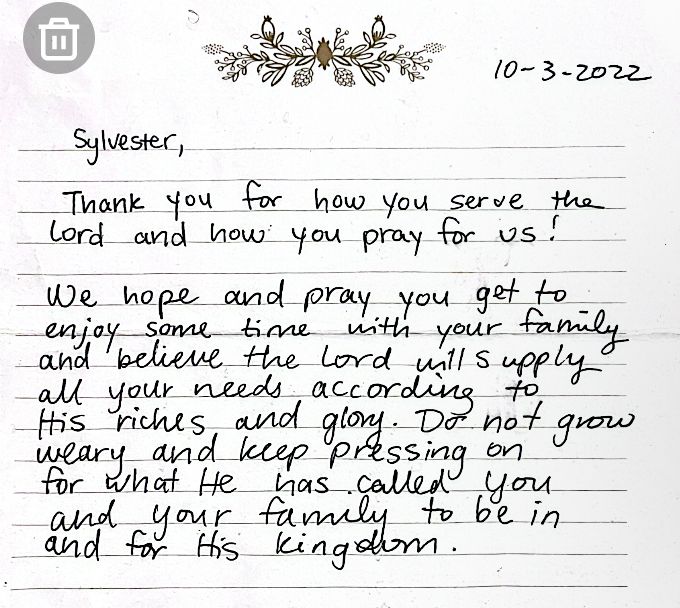 10-3-2022
Sylvester,
Thank you for how you serve the
Lord and how you pray for us!
We hope and pray you get to
enjoy some time with your family
and believe the Lord will supply
all your needs according to
His riches and glory. Do not grow
weary and keep pressing on
for what He has called you
and your family to be in
and for His kingdom.